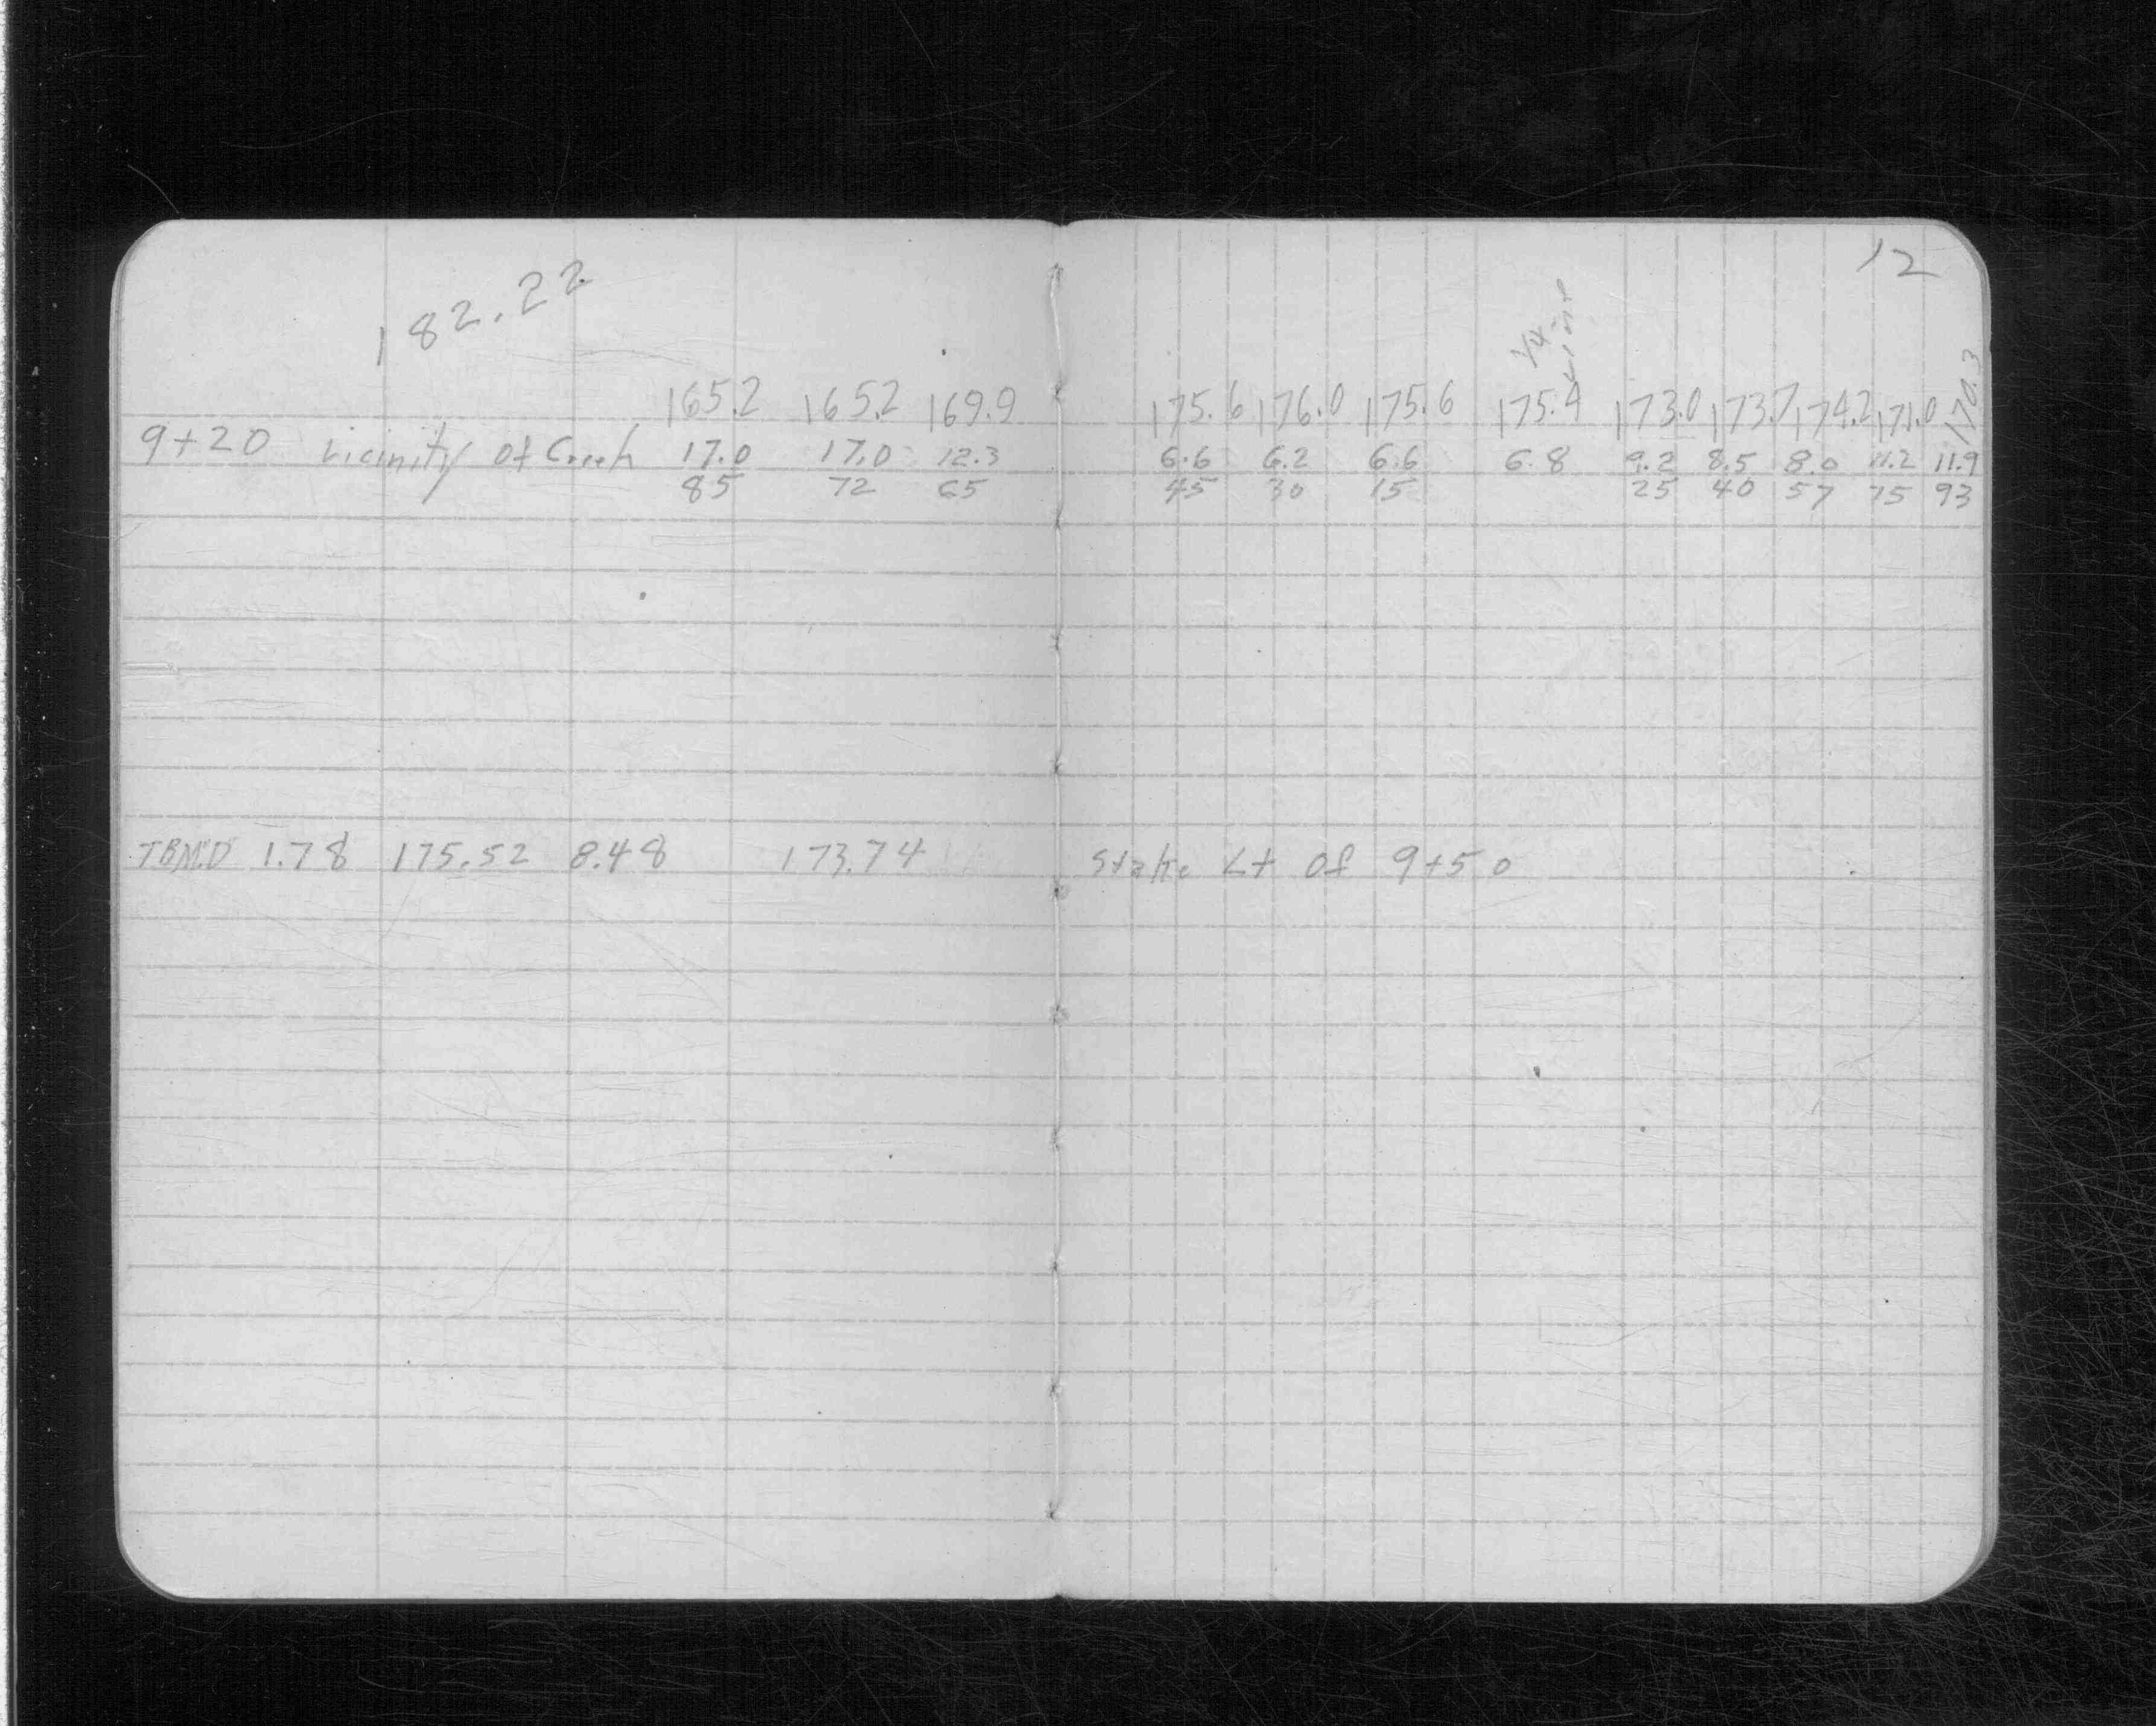 12
182.22
1/4 Line
165.2 165.2 169.9 175.6 176.0 175.6 175.4 173.0 173.7 174.2 171.0 170.3
9+20 vicinity of Creek 17.0 17.0 12.3 6.6 6.2 6.6 6.8 9.2 8.5 8.0 11.2 11.9
85 72 65 45 30 15 25 40 57 75 93
TBM."D" 1.78 175.52 8.48 173.74 Stake Lt of 9+50